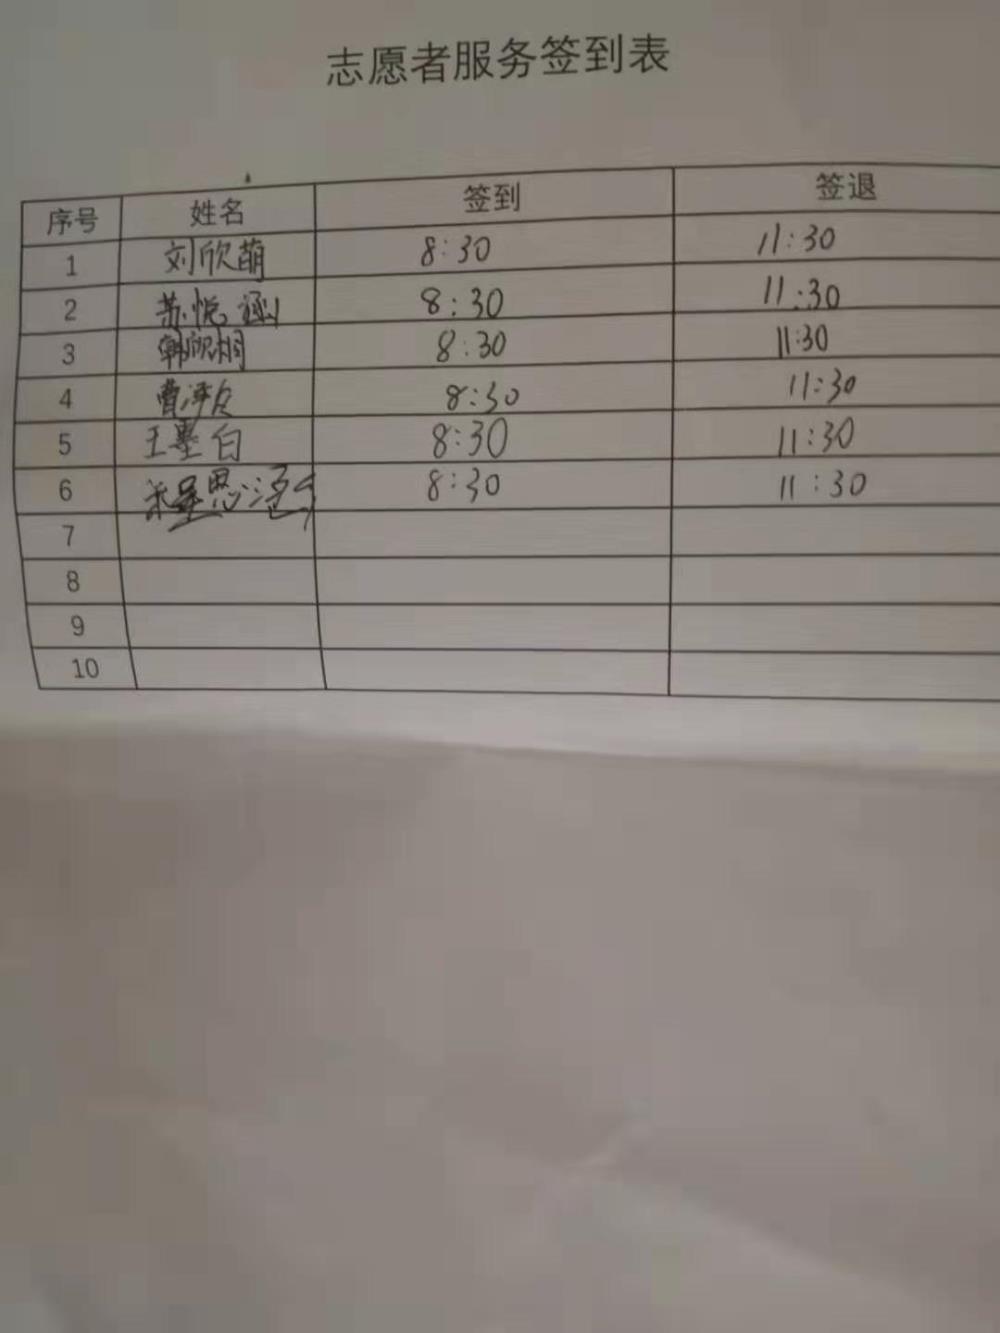 志愿者服务签到表
序号 姓名 签到 签退
1 刘欣萌 8:30 11:30
2 苏悦涵 8:30 11:30
3 韩欣桐 8:30 11:30
4 曹泽 8:30 11:30
5 王墨白 8:30 11:30
6 思 8:30 11:30
7
8
9
10